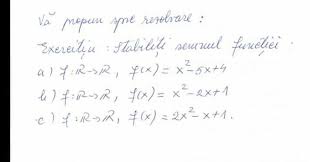 Vă propun spre rezolvare :
Exercițiu : Stabiliți semnul funcției .
a) f: R→R , f(x) = x²-5x+4
b) f: R→R , f(x) = x²-2x+1
c) f: R→R , f(x) = 2x²-x+1 .